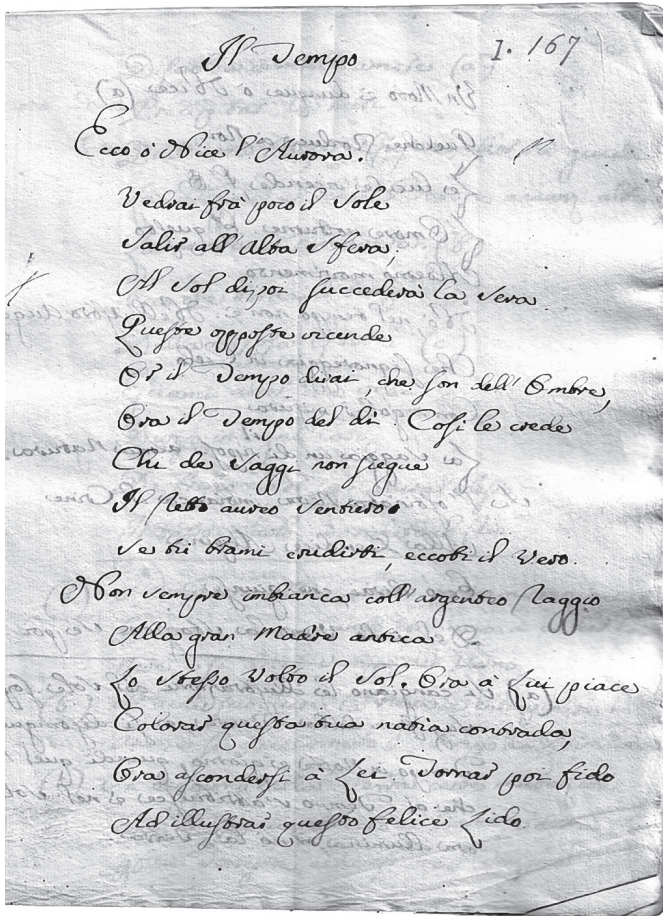 Il Tempo
I. 167
Ecco ò Nice l'Aurora.
Vedrai frà poco il Sole
Salir all'alta Sfera;
Al Sol di poi succederà la Sera.
Queste opposte vicende
Or il Tempo dirai, che son dell'Ombre,
Ora il Tempo del dì. Così le crede
Chi de Saggi non siegue
Il retto aureo Sentiero.
Se tu brami erudirti, eccoti il Vero.
Non sempre imbianca coll'argenteo raggio
Alla gran Madre antica
Lo stesso Volto il Sol. Ora à Lui piace
Colorar questa tua natia contrada,
Ora ascondersi à Lei Tornar poi fido
Ad illustrar questo felice Lido.